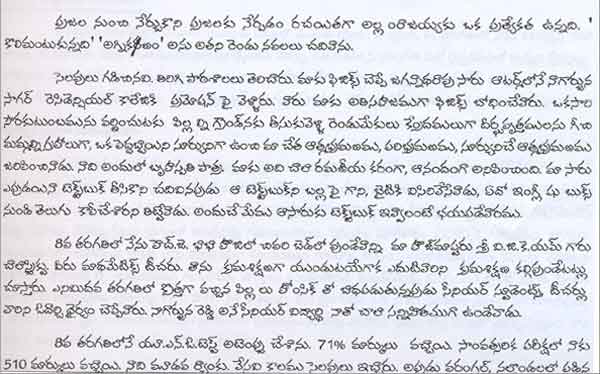 ప్రజల నుంచి నేర్చుకొని ప్రజలకు నేర్పడం రచయితగా అల్లం రాజయ్యకు ఒక ప్రత్యేకత ఉన్నది. '
కొలిమంటుకున్నది' 'అగ్నికణం' అను అతని రెండు నవలలు చదివాను.
సెలవులు గడిచినవి. తిరిగి పాఠశాలలు తెరిచారు. మాకు ఫిజిక్స్ చెప్పే జగన్నాథరావు సారు ఆటర్మ్‌లోనే నాగార్జున
సాగర్ రెసిడెన్షియల్ కాలేజికి ప్రమోషన్ పై వెళ్ళారు. వారు మాకు అతిసహజముగా ఫిజిక్స్ బోధించేవారు. ఒకసారి
సౌరకుటుంబమును వర్ణించుటకు పిల్లల్ని గ్రౌండ్‌నకు తీసుకువెళ్ళి రెండుమేకులు కేంద్రములుగా దీర్ఘవృత్తములను గీచి
మమ్మల్ని గ్రహాలుగా, ఒక పెద్దబ్బాయిని సూర్యునిగా ఉంచి మా చేత ఆత్మభ్రమణము, పరిభ్రమణము, సూర్యునిచే ఆత్మభ్రమణము
జరిపించినాడు. నాది అందులో బృహస్పతి పాత్ర. మాకు అది చాలా రమణీయ కరంగా, ఆనందంగా అనిపించింది. మా సారు
ఎపుడయినా టెక్స్ట్‌బుక్ తీసికొని చదివినపుడు ఆ టెక్స్ట్‌బుక్‌ని బల్ల పై గాని, బైటికి విసిరివేసేవాడు, ఏదో ఇంగ్లీషు బుక్స్
నుండి తెలుగు కాపీచేశారని తిట్టేవోడు. అందుచే మేము ఆసారుకు టెక్స్ట్‌బుక్ ఇవ్వాలంటే భయపడేవారము.
8వ తరగతిలో నేను హెచ్.జె. భాభా హౌజ్‌లో చివరి బెడ్‌లో వుండేవాన్ని మా హౌజ్‌మాష్టరు శ్రీ వి.జి.కె.యమ్ గారు
వీరు మాథమేటిక్స్ టీచరు. తాను క్రమశిక్షణగా యుండుటయేగాక ఎదుటివారిని క్రమశిక్షణ కల్గివుండేటట్లు
చూస్తారు. ఎనిమిదవ తరగతిలో క్రొత్తగా వచ్చిన పిల్లలు హోంసిక్ తో బాధపడుతున్నపుడు సీనియర్ స్టూడెంట్స్, టీచర్లు
వారిని ఓదార్చి ధైర్యం చెప్పేవారు. నాగార్జున రెడ్డి అనే సీనియర్ విద్యార్థి నాతో చాలా సన్నిహితముగా ఉండేవాడు.
8వ తరగతిలోనే యూ.ఎన్.ఓ.టెస్ట్ అటెంప్టు చేశాను. 71% మార్కులు వచ్చాయి. సాంవత్సరిక పరీక్షలో నాకు
510 మార్కులు వచ్చాయి. నాది మూడవ ర్యాంకు. వేసవి కాలము సెలవులు ఇచ్చారు. అపుడు వరంగల్, నల్గొండలలో పడిన